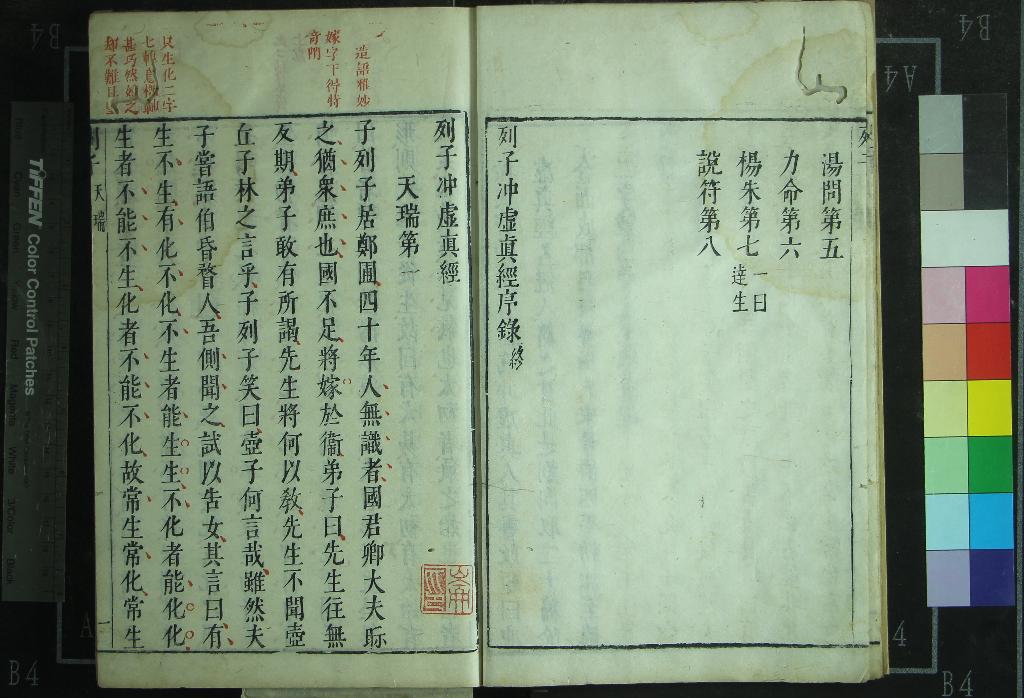 湯問第五
力命第六
楊朱第七 一曰達生
說符第八
列子冲虛眞經序錄 終
列子冲虛眞經
天瑞第一
子列子居鄭圃四十年人無識者國君卿大夫眎
之猶衆庶也國不足將嫁於衞弟子曰先生往無
反期弟子敢有所謁先生將何以敎先生不聞壺
丘子林之言乎子列子笑曰壺子何言哉雖然夫
子嘗語伯昏瞀人吾側聞之試以告女其言曰有
生不生有化不化不生者能生生不化者能化化
生者不能不生化者不能不化故常生常化常生
列子 天瑞 一
造語雅妙
嫁字下得特
奇閗
只生化二字
甚巧然如之
TIFFEN Color Control Patches
B4
B4
B4
B4
A4
4
A
Red
Magenta
White
3/Color
Black